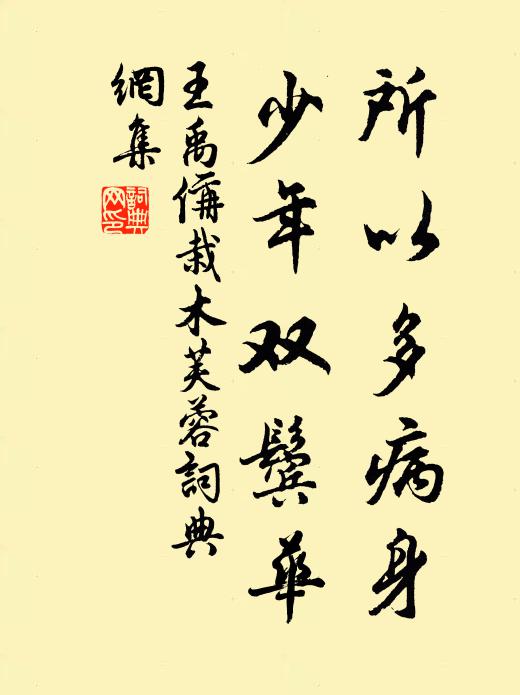 所以多病身
少年双鬓華
王禹偁栽木芙蓉詞典
網集
詞典
网印